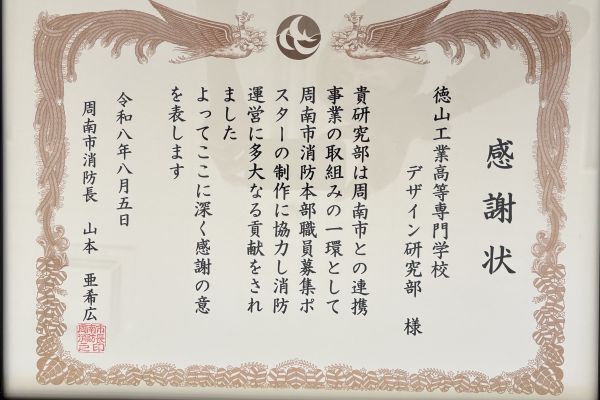 感謝状
徳山工業高等専門学校
デザイン研究部 様
貴研究部は周南市との連携
事業の取組みの一環として
周南市消防本部職員募集ポ
スターの制作に協力し消防
運営に多大なる貢献をされ
ました
よってここに深く感謝の意
を表します
令和八年八月五日
周南市消防長 山本 亜希広